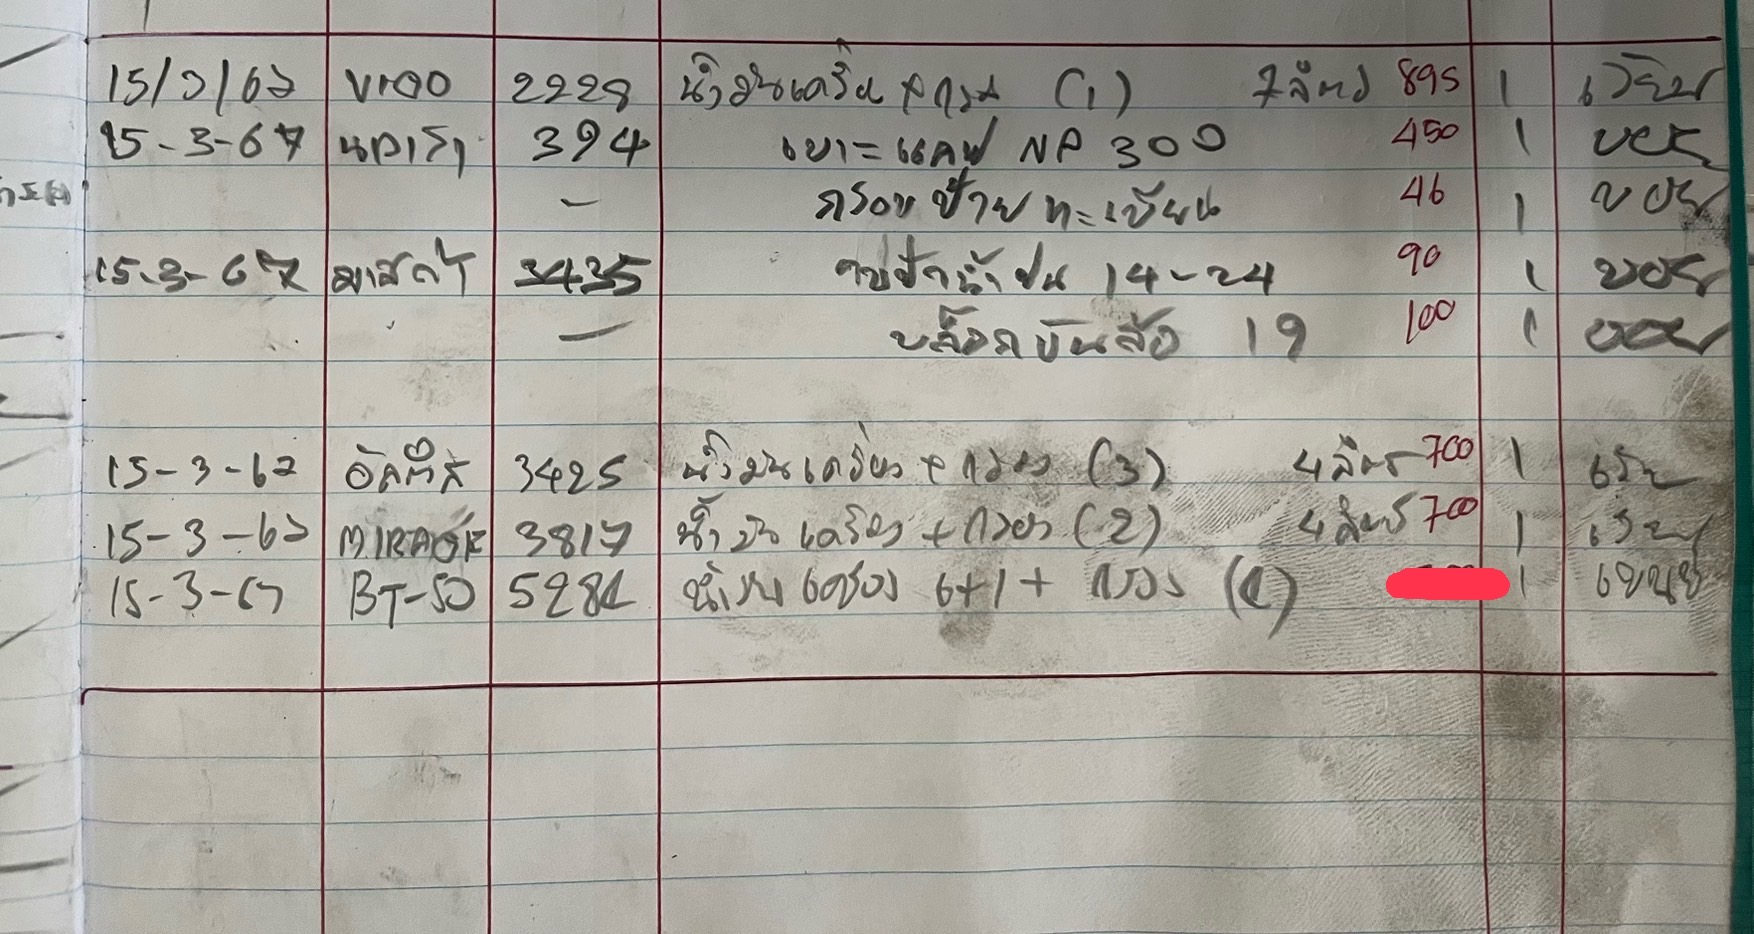 15/3/67 VIGO 2228 น้ำมันเครื่อง + กรอง (1) 7 ลิตร 895 1
15-3-67 นาวาร่า 394 เบาะแคป NP 300 450 1 บอย
— กรอบป้ายทะเบียน 46 1 บอย
15-3-67 มาสด้า 3435 14-24 90 1 บอย
— บล็อกขันล้อ 19 100 1 บอย
15-3-67 3425 น้ำมันเครื่อง + กรอง (3) 4 ลิตร 700 1
15-3-67 MIRAGE 3817 น้ำมันเครื่อง + กรอง (2) 4 ลิตร 700 1
15-3-67 BT-50 น้ำมันเครื่อง 6+1 + กรอง 1